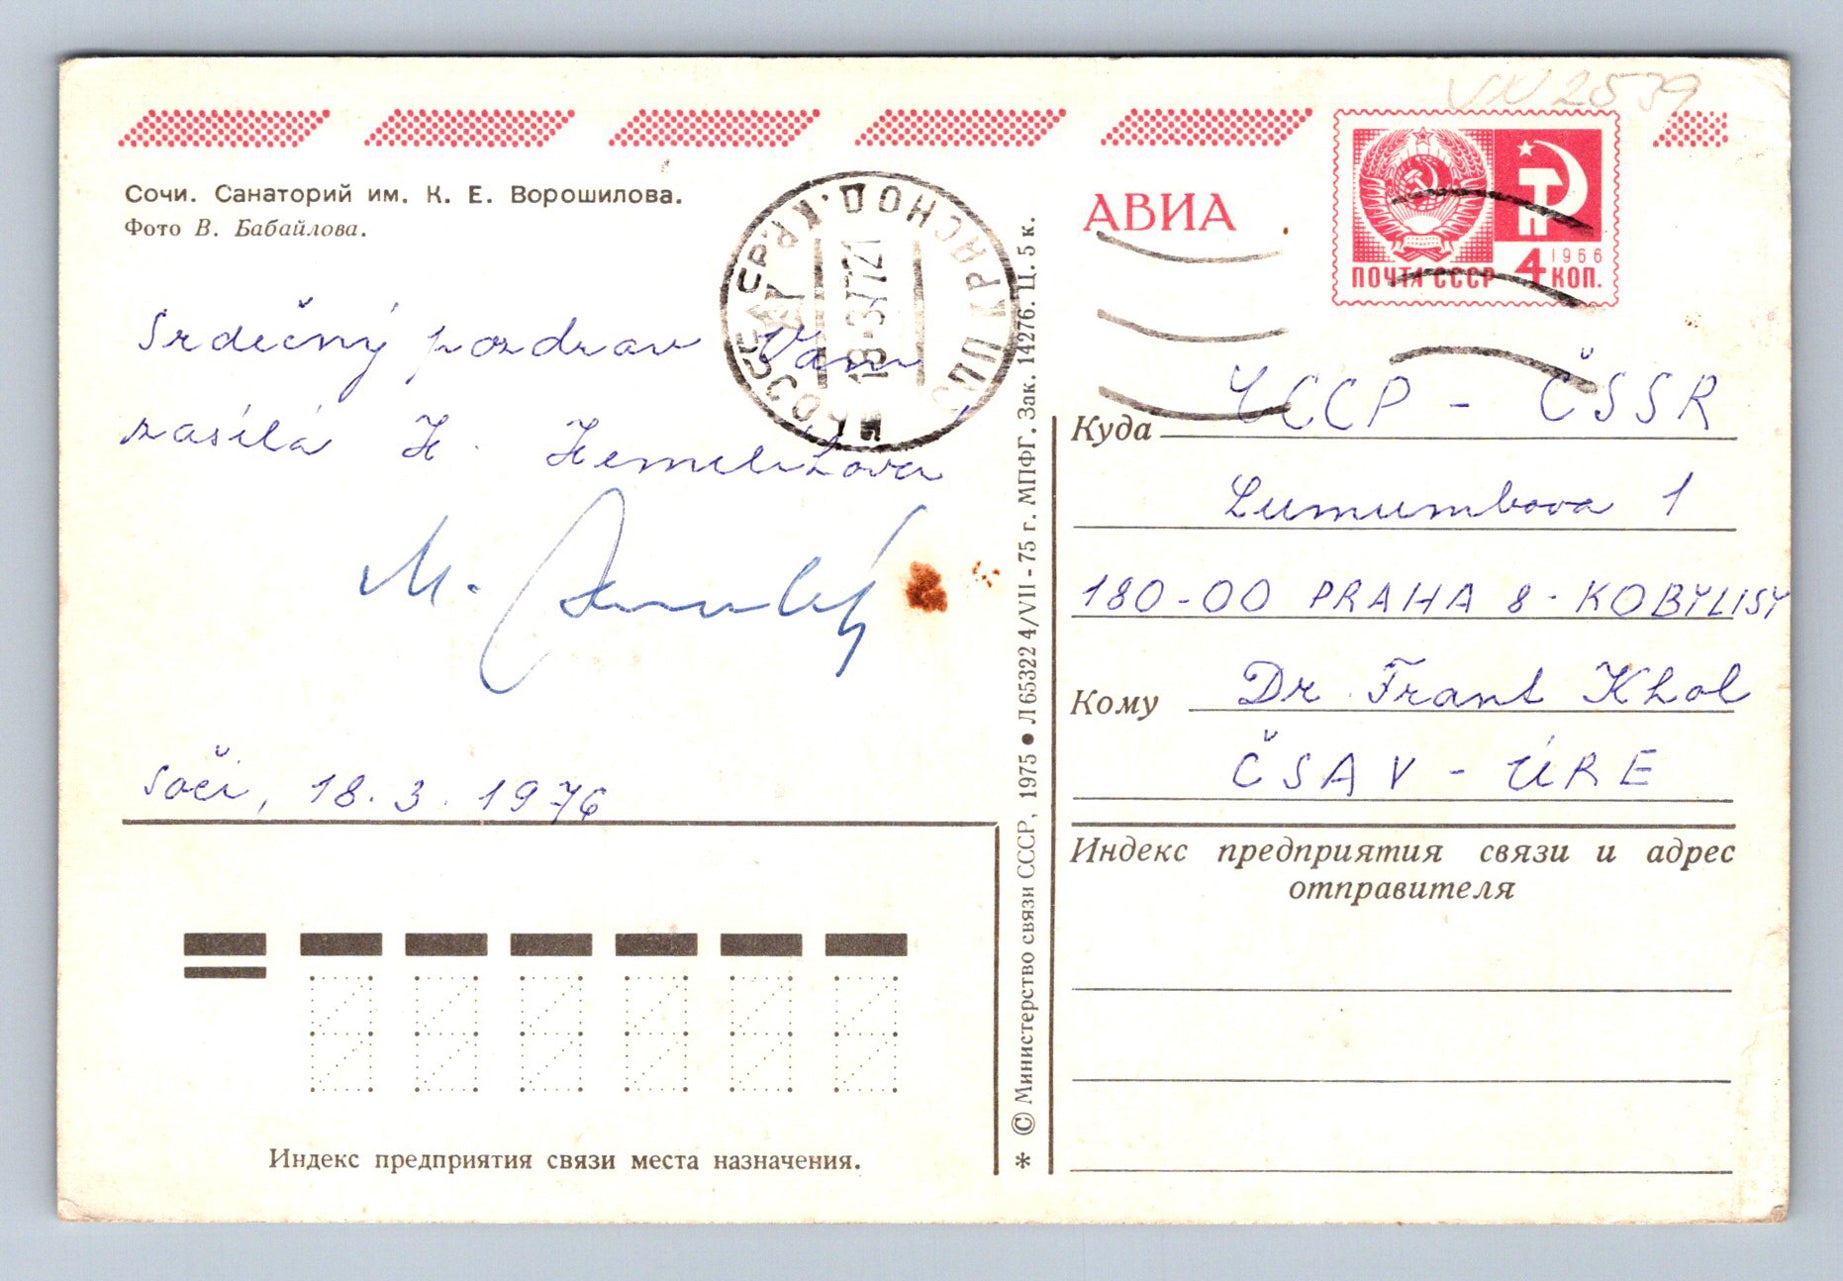 Сочи. Санаторий им. К. Е. Ворошилова.
Фото В. Бабайлова.
Srdečný pozdrav Vám
zasílá H.
M.
Soči, 18. 3. 1976
Индекс предприятия связи места назначения.
* © Министерство связи СССР, 1975 ● Л 65322 4/VII-75 г. МПФГ. Зак. 14276. Ц. 5 к.
АВИА
ПОЧТА СССР 4 КОП.
1966
Куда ЧССР - ČSSR
Lumumbova 1
180-00 PRAHA 8 - KOBYLISY
Кому Dr. Frant Khol
ČSAV - ÚRE
Индекс предприятия связи и адрес
отправителя